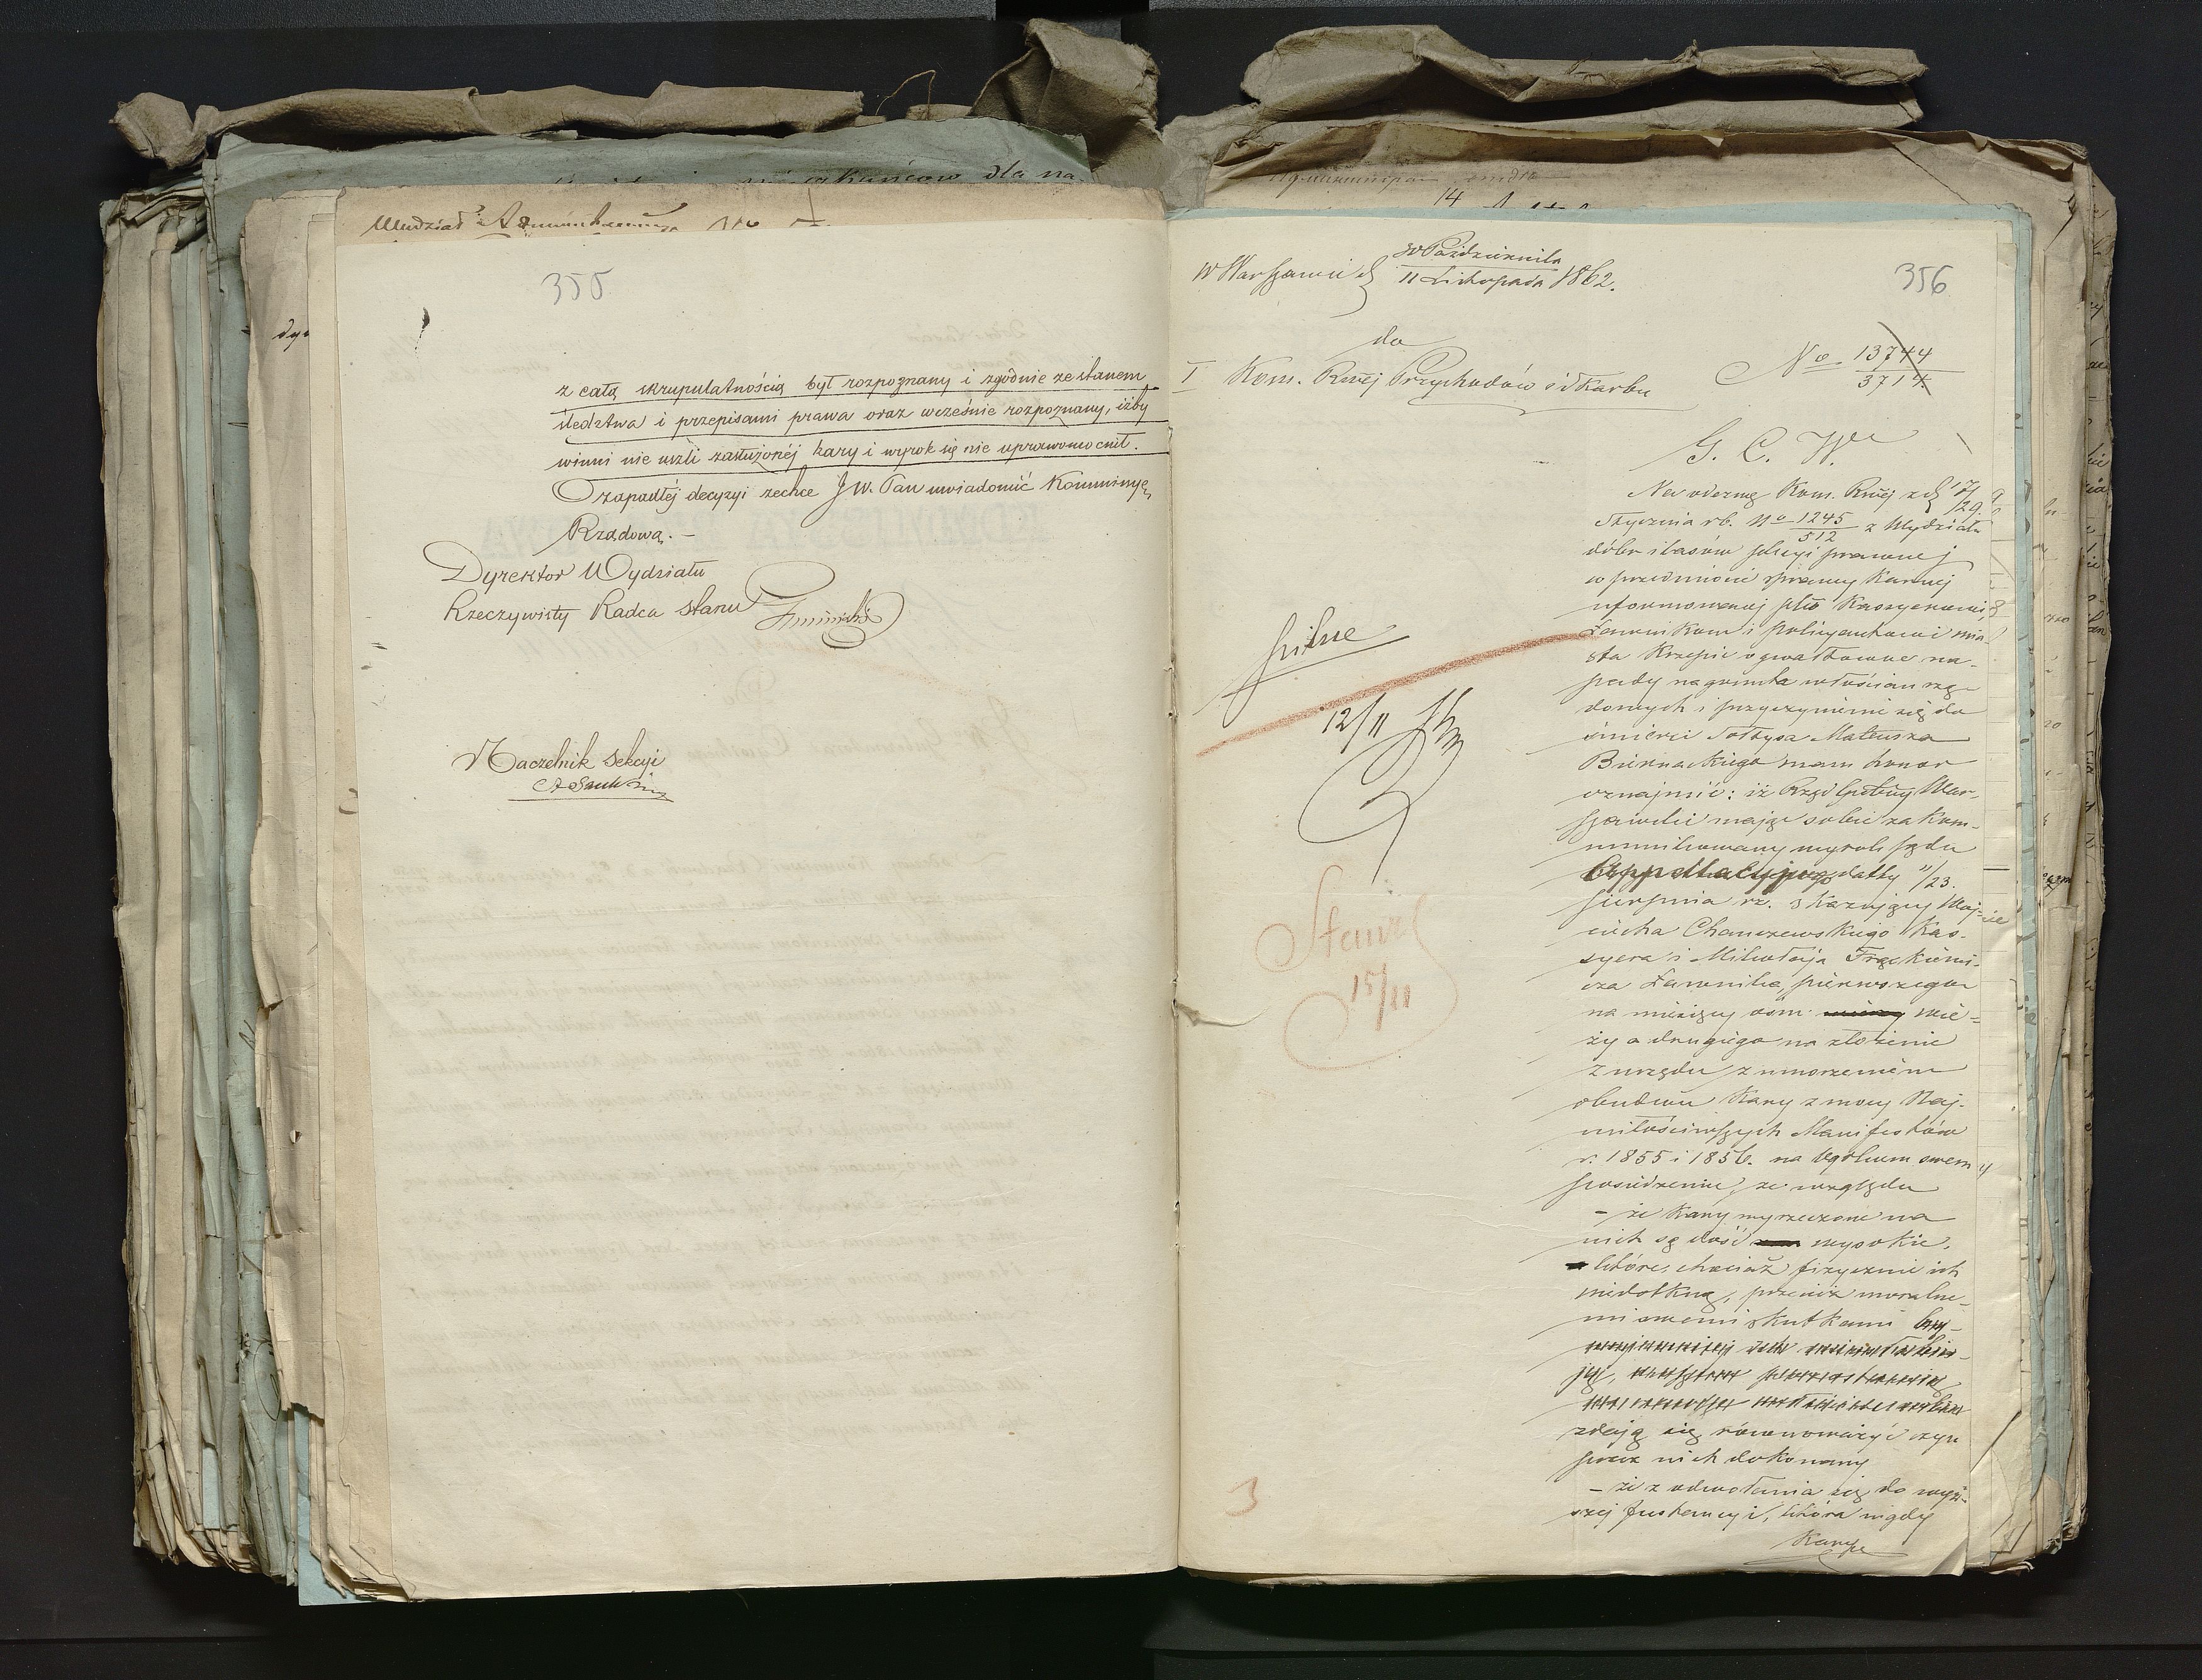 355
z całą skrupulatnością był rozpoznany i zgodnie ze stanem
śledztwa i przepisami prawa oraz wcześnie rozpoznany, iżby
winni nie uszli zasłużonéj kary i wyrok się nie uprawomocnił.
O zapadłéj decyzyi zechce JW. Pan uwiadomić Kommissyę
Rządową. —
Dyrektor Wydziału
Rzeczywisty Radca Stanu
Naczelnik Sekcyi
356
w Warszawie d 30 Października
11 Listopada 1862.
do
I Kom. Rwéj Przychodów i Skarbu
No 13744
3714
G. C. W.
Na odezwę Kom. Rwéj z d 17/29
Stycznia rb. No 1245/512 z Wydziału
dóbr i lasów sekcyi prawnej
w przedmiocie sprawy karnej
uformowanej plko Kassyerowi,
Ławnikom i policyantowi mia
sta Krzepic o gwałtowne na-
pady na grunta włościan rzą-
dowych i przyczynienie się do
śmierci Sołtysa Mateusza
Biernackiego mam honor
oznajmić: iż Rząd Gubny War-
szawski mając sobie za kom-
munikowany wyrok sądu
Appellacyjnego datty 11/23.
Sierpnia rz. skazujący Woj-
ciecha Chanczewskiego Kas-
syera i Mikołaja Frąckiewi-
cza Ławnika, pierwszego
na miesięcy ośm wie-
ży a drugiego na złożenie
z urzędu z umorzeniem
obudwu kary z mocy Naj-
miłościwszych Manifestów
r. 1855 i 1856. na Ogólnem swem
posiedzeniu, ze względu
- że kary wyrzeczone na
nich są dość wysokie,
które, chociaż fizycznie ich
niedotkną, przecież moralne-
mi swemi skutkami
zdają się równoważyć czyn
przez nich dokonany
- że z odwołania się do wyż-
szej Instancyi, która nigdy
kary
pilne
12/11
Stawić
15/11
3